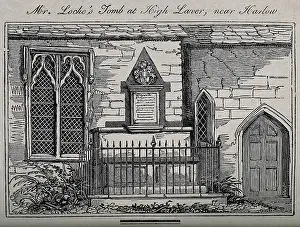 Mr. Locke's Tomb at High Laver, near Harlow.